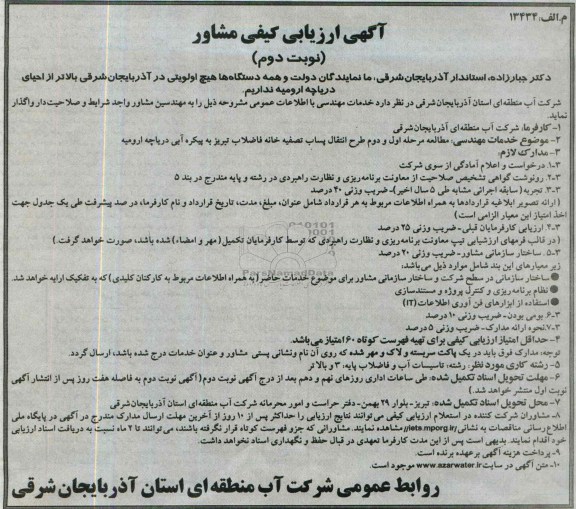 م.الف: ۱۳۴۳۴
آگهی ارزیابی کیفی مشاور
(نوبت دوم)
دکتر جبارزاده، استاندار آذربایجان شرقی، ما نمایندگان دولت و همه دستگاه‌ها هیچ اولویتی در آذربایجان شرقی بالاتر از احیای
دریاچه ارومیه نداریم.
شرکت آب منطقه‌ای استان آذربایجان شرقی در نظر دارد خدمات مهندسی با اطلاعات عمومی مشروحه ذیل را به مهندسین مشاور واجد شرایط و صلاحیت‌دار واگذار
نماید.
۱-کارفرما: شرکت آب منطقه‌ای آذربایجان شرقی
۲- موضوع خدمات مهندسی: مطالعه مرحله اول و دوم طرح انتقال پساب تصفیه خانه فاضلاب تبریز به پیکره آبی دریاچه ارومیه
۳-مدارک لازم:
۳-۱ درخواست و اعلام آمادگی از سوی شرکت
۳-۲. رونوشت گواهی تشخیص صلاحیت از معاونت برنامه‌ریزی و نظارت راهبردی در رشته و پایه مندرج در بند ۵
۳-۳. تجربه (سابقه اجرائی مشابه طی ۵ سال اخیر)- ضریب وزنی ۴۰ درصد
( ارائه تصویر ابلاغیه قراردادها به همراه اطلاعات مربوط به هر قرارداد شامل عنوان، مبلغ، مدت، تاریخ قرارداد و نام کارفرما، در صد پیشرفت طی یک جدول جهت
اخذ امتیاز این معیار الزامی است)
۳-۴. ارزیابی کارفرمایان قبلی- ضریب وزنی ۲۵ درصد
( در قالب فرمهای ارزشیابی تیپ معاونت برنامه‌ریزی و نظارت راهبردی که توسط کارفرمایان تکمیل ( مهر و امضاء ) شده باشد، صورت خواهد گرفت.)
۳-۵. ساختار سازمانی مشاور- ضریب وزنی ۲۰ درصد
زیر معیارهای این بند شامل موارد ذیل می‌باشد:
● ساختار سازمانی در سطح شرکت و ساختار سازمانی مشاور برای موضوع خدمات حاضر ( به همراه اطلاعات مربوط به کارکنان کلیدی) که به تفکیک ارایه خواهد شد.
● نظام برنامه‌ریزی و کنترل پروژه و مستندسازی
● استفاده از ابزارهای فن آوری اطلاعات (IT)
۳-۶ بومی بودن- ضریب وزنی ۱۰ درصد
۳-۷.نحوه ارائه مدارک- ضریب وزنی ۵ درصد
۴- حداقل امتیاز ارزیابی کیفی برای تهیه فهرست کوتاه ۶۰ امتیاز می‌باشد.
توجه: مدارک فوق باید در یک پاکت سربسته و لاک و مهر شده که روی آن نام ونشانی پستی مشاور و عنوان خدمات درج شده باشد، ارسال گردد.
۵- رشته کاری مورد نظر: رشته: تاسیسات آب و فاضلاب پایه: ۳ و بالاتر
۶- مهلت تحویل اسناد تکمیل شده: طی ساعات اداری روزهای نهم و دهم بعد از درج آگهی نوبت دوم ( آگهی نوبت دوم به فاصله هفت روز پس از انتشار آگهی
نوبت اول منتشر خواهد شد.)
۷- محل تحویل اسناد تکمیل شده: تبریز- بلوار ۲۹ بهمن- دفتر حراست و امور محرمانه شرکت آب منطقه‌ای استان آذربایجان شرقی
۸- مشاوران شرکت کننده در استعلام ارزیابی کیفی می‌توانند نتایج ارزیابی را حداکثر پس از ۱۰ روز از آخرین مهلت ارسال مدارک مندرج در آگهی در پایگاه ملی
اطلاع رسانی مناقصات به نشانی http://iets.mporg.ir مشاهده نمایند. مشاورانی که جزو فهرست کوتاه قرار نگرفته باشند، می‌توانند تا ۲ ماه نسبت به دریافت اسناد ارزیابی
خود اقدام نمایند. بدیهی است پس از این مدت کارفرما تعهدی در قبال حفظ و نگهداری اسناد نخواهد داشت.
۹-پرداخت هزینه آگهی برعهده برنده است.
۱۰- متن آگهی در سایت www.azarwater.ir موجود است.
روابط عمومی شرکت آب منطقه ای استان آذربایجان شرقی